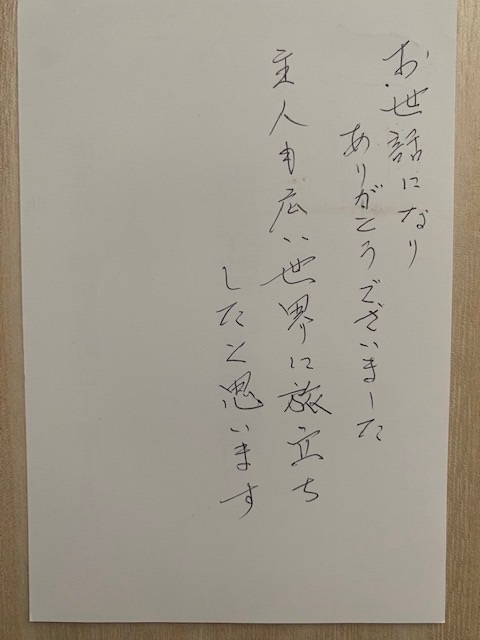 お世話になり
ありがとうございました
主人も広い世界に旅立ち
したと思います